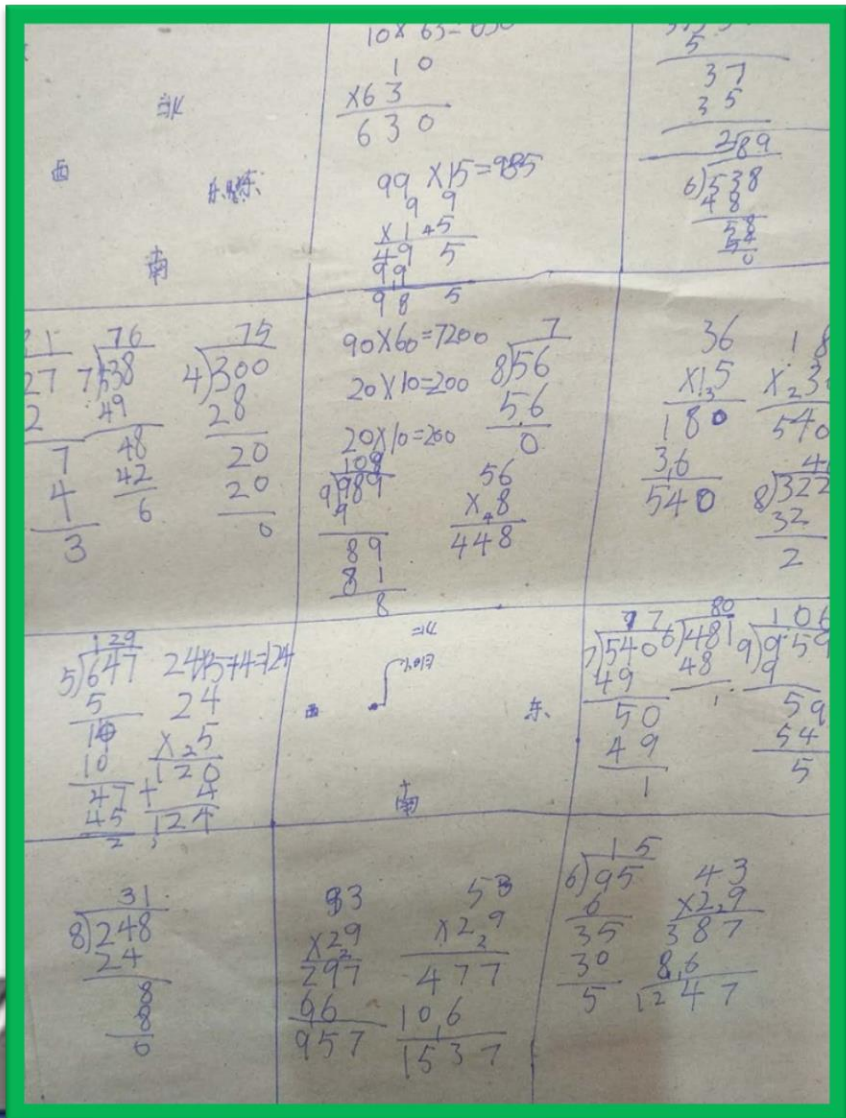 10×63=630
10
×63
630
99×15=985
9 9
×1 4 5
49 5
99
98 5
37
35
289
6)538
48
58
54
0
北
西
东
南
76
7)538
49
48
42
6
75
4)300
28
20
20
0
27
7
4
3
90×60=7200
20×10=200
20×10=200
7
8)56
56
0
109
9)989
9
89
81
8
56
×4 8
448
36
×1 3 5
180
3 6
540
18
×2 3
540
4
8)322
32
2
129
5)647
5
10
47
45
2
24×5+4=124
24
×2 5
120
+ 4
124
北
西
东
南
77
7)540
49
50
49
1
80
6)481
48
1
106
9)959
9
59
54
5
31
8)248
24
8
8
0
33
×2 2 9
297
66
957
53
×2 2 9
477
10 6
1537
15
6)95
6
35
30
5
43
×2 2 9
387
8 6
1247